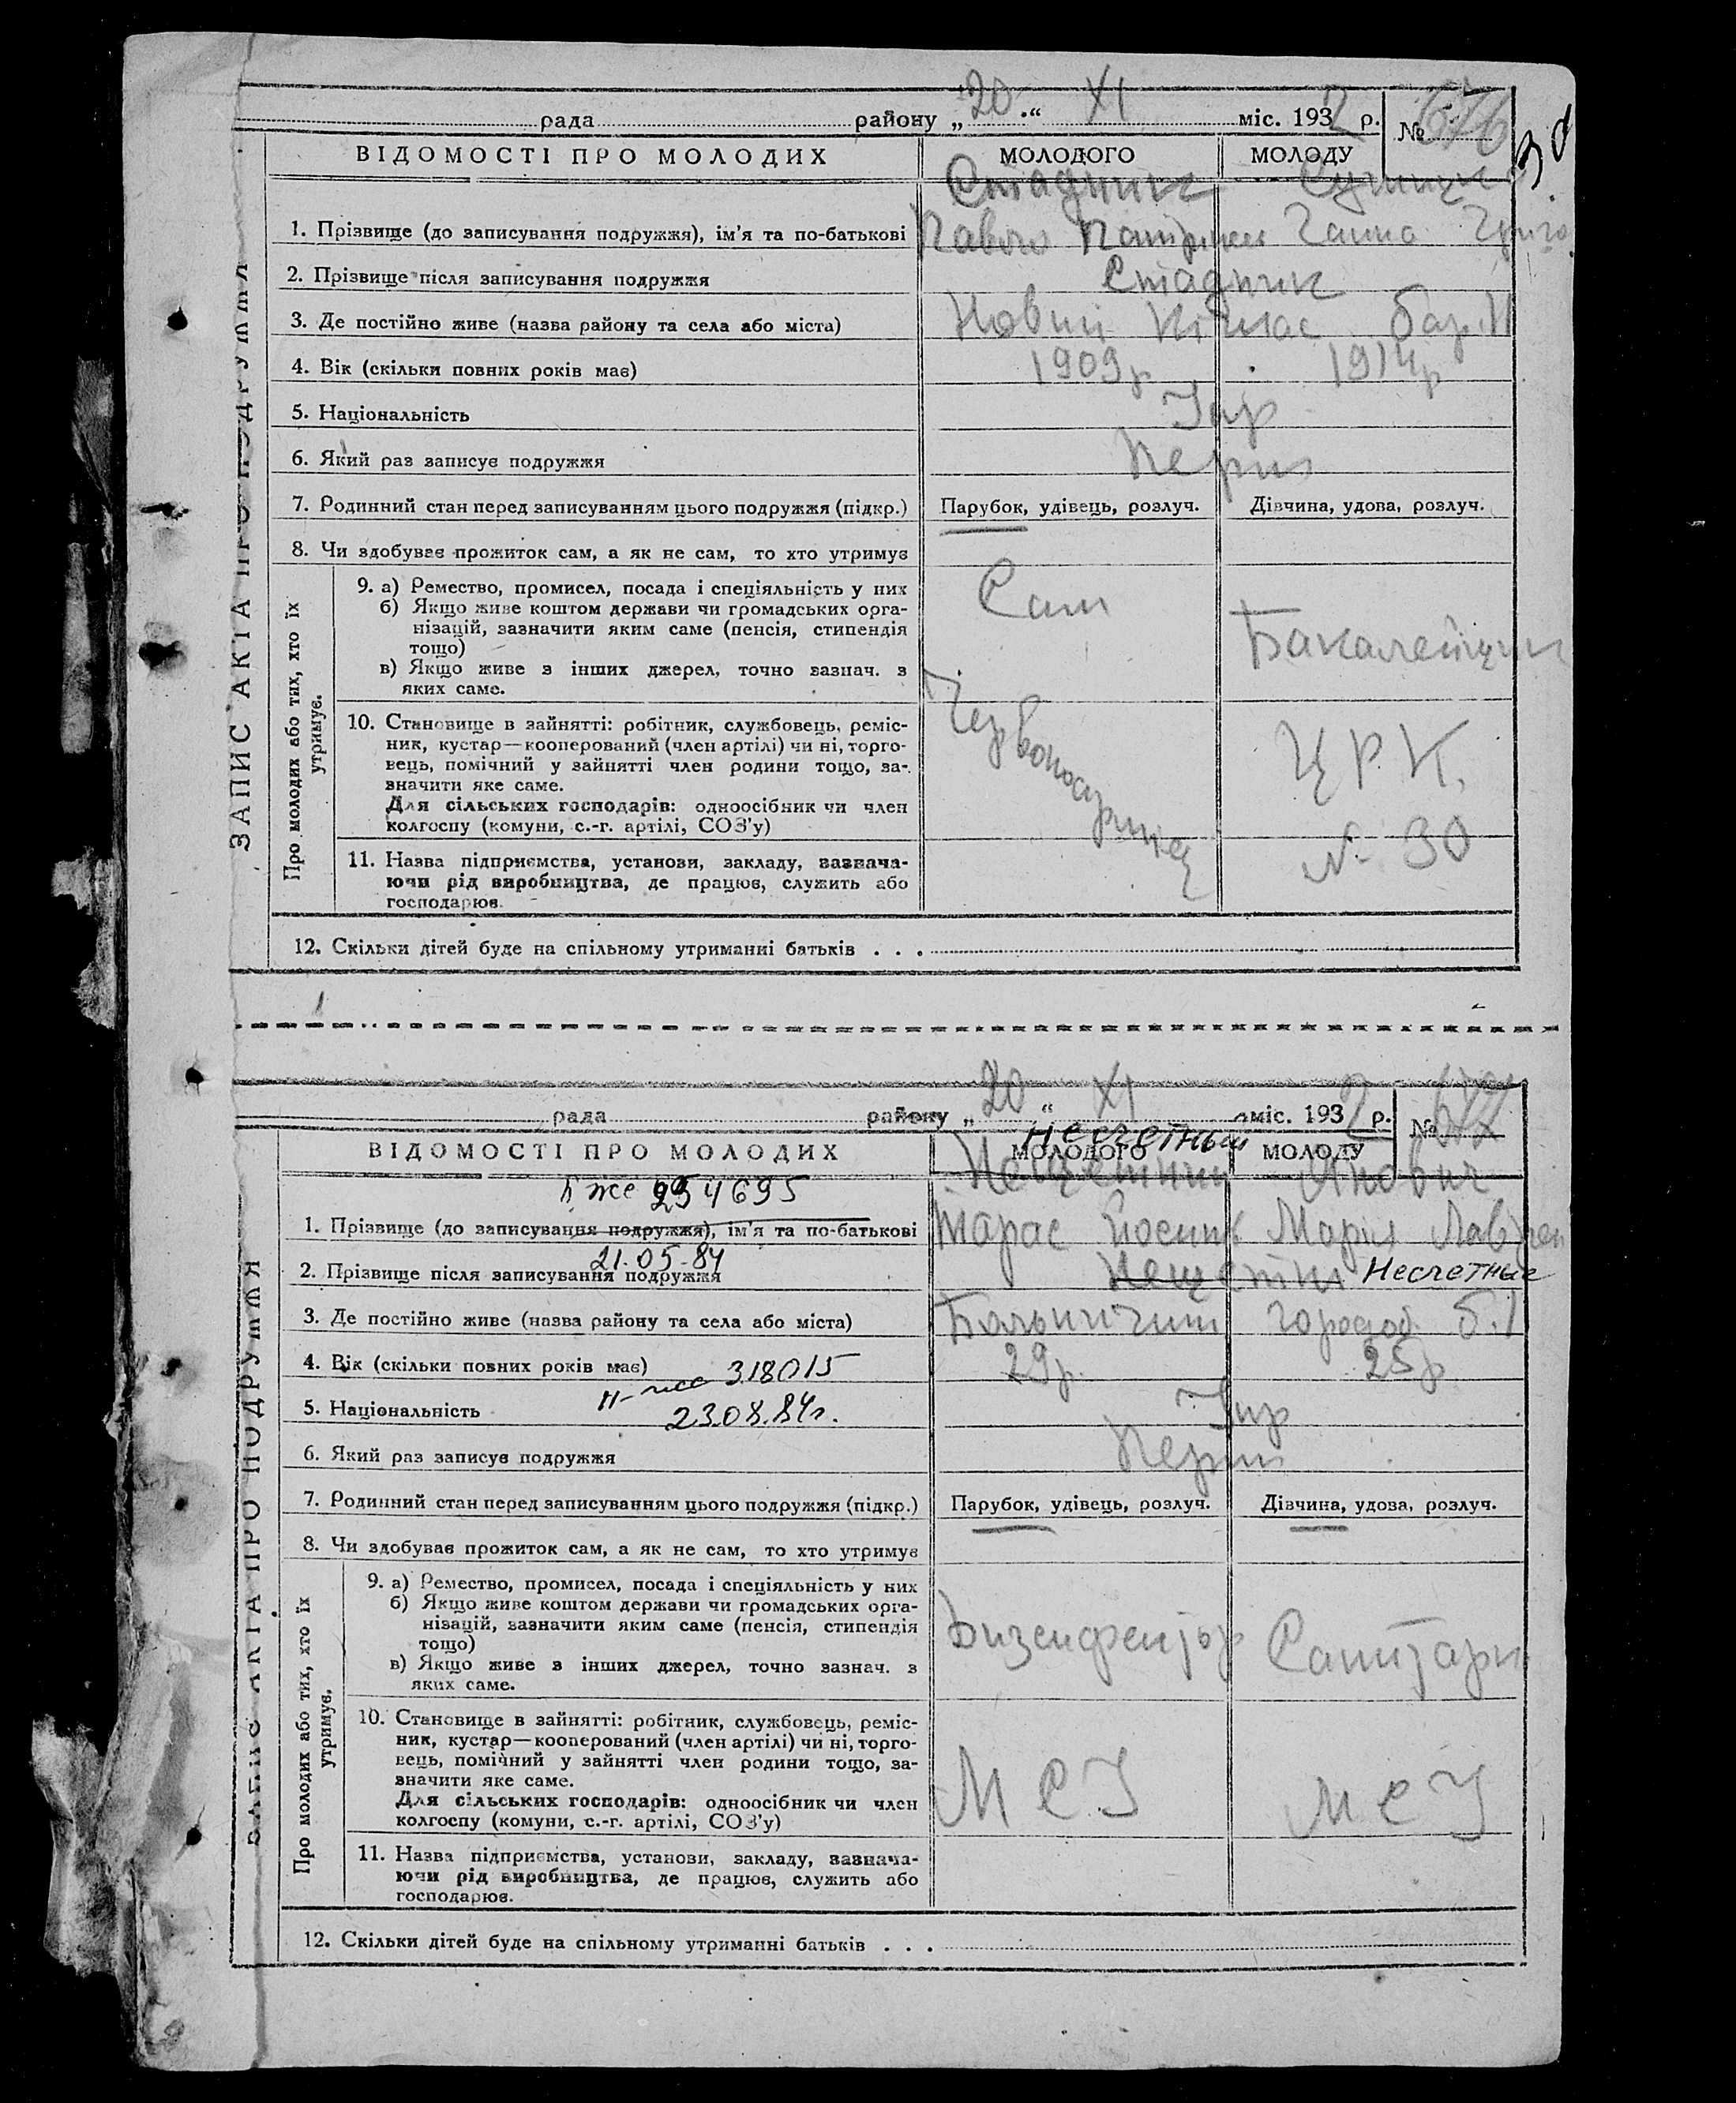 рада району „20“ XI міс. 1932 р. № 676
ВІДОМОСТІ ПРО МОЛОДИХ МОЛОДОГО МОЛОДУ
Стадник
1. Прізвище (до записування подружжя), ім’я та по-батькові Павло Ганна
2. Прізвище після записування подружжя Стадник
3. Де постійно живе (назва району та села або міста) Новий
4. Вік (скільки повних років має) 1909 р 1914 р
5. Національність Укр
6. Який раз записує подружжя Перш
7. Родинний стан перед записуванням цього подружжя (підкр.) Парубок, удівець, розлуч. Дівчина, удова, розлуч.
8. Чи здобуває прожиток сам, а як не сам, то хто утримує
ЗАПИС АКТА ПРО ПОДРУЖЖЯ
Про молодих або тих, хто їх утримує.
9. а) Ремество, промисел, посада і спеціяльність у них Сам
б) Якщо живе коштом держави чи громадських орга-
нізацій, зазначити яким саме (пенсія, стипендія Бакалейщик
тощо)
в) Якщо живе з інших джерел, точно зазнач. з
яких саме.
10. Становище в зайнятті: робітник, службовець, реміс- Червоноармієц
ник, кустар—кооперований (член артілі) чи ні, торго-
вець, помічний у зайнятті член родини тощо, за- Ц Р. К.
значити яке саме.
Для сільських господарів: одноосібник чи член
колгоспу (комуни, с.-г. артілі, СОЗ’у)
11. Назва підприємства, установи, закладу, зазнача- № 30
ючи рід виробництва, де працює, служить або
господарює.
12. Скільки дітей буде на спільному утриманні батьків . . .
рада району „20“ XI міс. 1932 р. № 677
Несчетный
ВІДОМОСТІ ПРО МОЛОДИХ МОЛОДОГО МОЛОДУ
954695
1. Прізвище (до записування подружжя), ім’я та по-батькові Тарас Йосип Марія Лаврен
21.05-84
2. Прізвище після записування подружжя Несчетные
3. Де постійно живе (назва району та села або міста) б. 1
4. Вік (скільки повних років має) 318015 29 р. 25 р
5. Національність 23.08.84г. Укр
6. Який раз записує подружжя Перш
7. Родинний стан перед записуванням цього подружжя (підкр.) Парубок, удівець, розлуч. Дівчина, удова, розлуч.
8. Чи здобуває прожиток сам, а як не сам, то хто утримує
ЗАПИС АКТА ПРО ПОДРУЖЖЯ
Про молодих або тих, хто їх утримує.
9. а) Ремество, промисел, посада і спеціяльність у них
б) Якщо живе коштом держави чи громадських орга-
нізацій, зазначити яким саме (пенсія, стипендія Дизенфектор Санітарк
тощо)
в) Якщо живе з інших джерел, точно зазнач. з
яких саме.
10. Становище в зайнятті: робітник, службовець, реміс-
ник, кустар—кооперований (член артілі) чи ні, торго-
вець, помічний у зайнятті член родини тощо, за-
значити яке саме. М С У М С У
Для сільських господарів: одноосібник чи член
колгоспу (комуни, с.-г. артілі, СОЗ’у)
11. Назва підприємства, установи, закладу, зазнача-
ючи рід виробництва, де працює, служить або
господарює.
12. Скільки дітей буде на спільному утриманні батьків . . .